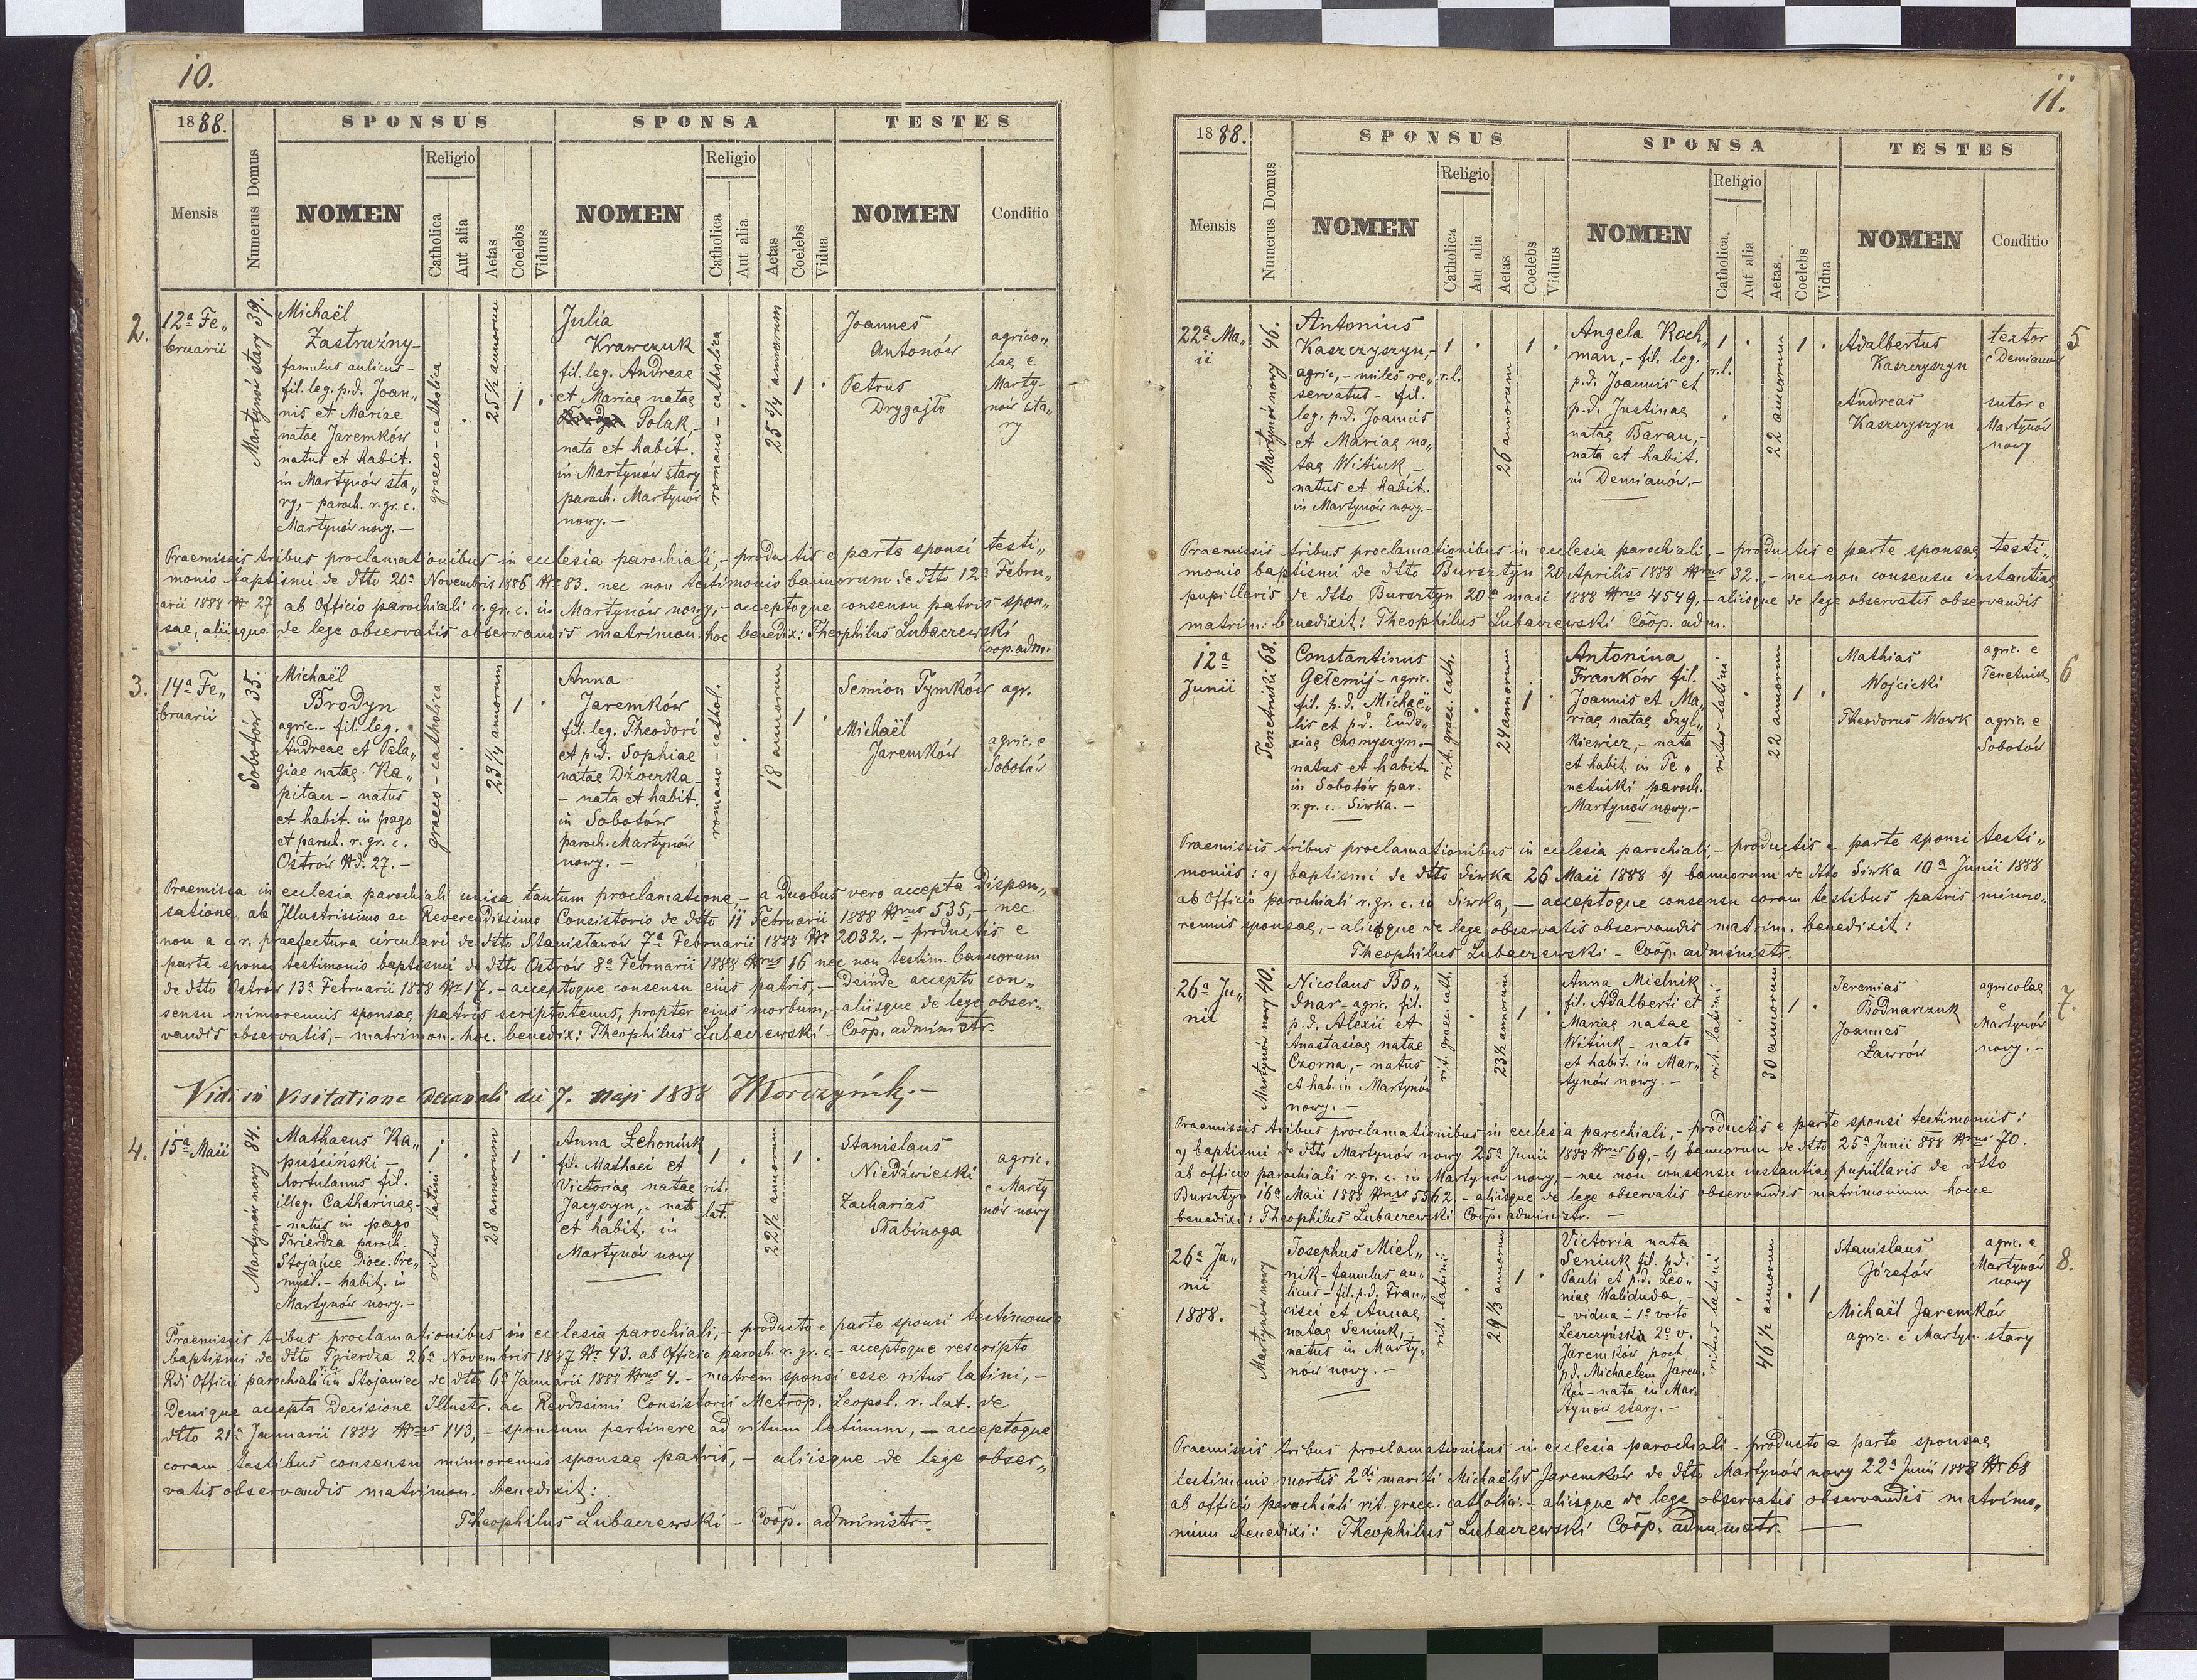 10.
1888.
SPONSUS
SPONSA
TESTES
Mensis
Numerus Domus
NOMEN
Religio
Catholica
Aut alia
Aetas
Coelebs
Viduus
NOMEN
Religio
Catholica
Aut alia
Aetas
Coelebs
Vidua
NOMEN
Conditio
2.
12ª Fe„
bruarii
Martynów stary 39.
Michaël
Zastrużny-
famulus aulicus-
fil. leg. p.d. Joan„
nis et Mariae
natae Jaremków
natus et habit.
in Martynów sta„
ry,- paroch. r. gr. c.
Martynów nowy.-
graeco-catholica
25½ annorum
1
Julia
Krawczuk
fil. leg. Andreae
et Mariae natae
Polak,-
nata et habit.
in Martynów stary
paroch. Martynów
nowy.-
romano-catholica
25 3/4 annorum
1
Joannes
Antonów
Petrus
Drygajło
agrico„
lae e
Marty-
nów sta„
ry
Praemissis tribus proclamationibus in ecclesia parochiali,- productis e parte sponsi testi„
monio baptismi de dtto 20ª Novembris 1886 Nr 83. nec non testimonio bannorum de dtto 12ª Febru„
arii 1888 Nr 27 ab Officio parochiali r. gr. c. in Martynów nowy,- acceptoque consensu patris spon„
sae, aliisque de lege observatis observandis matrimon. hoc benedix: Theophilus Lubaczewski
Coop. adm.
3.
14ª Fe„
bruarii
Sobotów 35.
Michaël
Brodyn
agric.- fil. leg.
Andreae et Pela„
giae natae Ka„
pitan - natus
et habit. in pago
et paroch. r. gr. c.
Ostrów Nd. 27.-
graeco-catholica
23¼ annorum
1
Anna
Jaremków
fil. leg. Theodori
et p.d. Sophiae
natae Dżoczka-
- nata et habit.
in Sobotów
paroch. Martynów
nowy.-
romano-cathol.
18 annorum
1
Semion Tymków
Michaël
Jaremków
agr.
agric. e
Sobotów
Praemissa in ecclesia parochiali unica tantum proclamatione,- a duobus vero accepta dispen„
satione ab Illustrissimo ac Reverendissimo Consistorio de dtto 11 Februarii 1888 Nrus 535,- nec
non a c.r. praefectura circulari de dtto Stanisławów 7ª Februarii 1888 Nr 2032.- productis e
parte sponsi testimonio baptismi de dtto Ostrów 8ª Februarii 1888 Nrus 16 nec non testim. bannorum
de dtto Ostrów 13ª Februarii 1888 Nr 17.- acceptoque consensu eius patris,- Deinde accepto con„
sensu minorennis sponsae patris scriptotenus, propter eius morbum,- aliisque de lege obser„
vandis observatis,- matrimon. hoc. benedix: Theophilus Lubaczewski- Coop. administr.
Vidi in visitatione decanali die 7. maji 1888
4.
15ª Maii
Martynów nowy 84.
Mathaeus Ka„
puściński-
hortulanus fil.
illeg. Catharinae-
- natus in pago
Twierdza paroch.
Stojańce Dioec. Pre„
mysl.- habit. in
Martynów nowy.-
1
ritus latini
28 annorum
1
Anna Lehoniuk
fil. Mathaei et
Victoriae natae
Jacyszyn,- nata
et habit. in
Martynów nowy
1
rit.
lat.
22½ annorum
1
Stanislaus
Niedźwiecki
Zacharias
Stabinoga
agric.
e Marty
nów nowy
Praemissis tribus proclamationibus in ecclesia parochiali,- producto e parte sponsi testimonio
baptismi de dtto Twierdza 26ª Novembris 1887 Nr 43. ab Officio paroch. r. gr. c.- acceptoque rescripto
Rdi Officii parochiali r. l. in Stojaniec de dtto 6ª Januarii 1888 Nrus 4.- matrem sponsi esse ritus latini,-
Denique accepta Decisione Illustr. ac Revdssimi Consistorii Metrop. Leopol. r. lat. de
dtto 21ª Januarii 1888 Nrus 143,- sponsum pertinere ad ritum latinum,- acceptoque
coram testibus consensu minorennis sponsae patris,- aliisque de lege obser„
vatis observandis matrimon. benedixit:
Theophilus Lubaczewski - Coop. administr.
11.
1888.
SPONSUS
SPONSA
TESTES
Mensis
Numerus Domus
NOMEN
Religio
Catholica
Aut alia
Aetas
Coelebs
Viduus
NOMEN
Religio
Catholica.
Aut alia
Aetas.
Coelebs
Vidua
NOMEN
Conditio
5
22ª Ma„
ii
Martynów nowy 46.
Antonius
Kaszczyszyn,-
agric,- miles re„
servatus- fil.
leg. p.d. Joannis
et Mariae na„
tae Witiuk,-
natus et habit.
in Martynów nowy.-
1
r.l.
26 annorum
1
Angela Koch„
man,- fil. leg.
p.d. Joannis et
p.d. Justinae
natae Baran,-
nata et habit.
in Demianów.-
1
r.l.
22 annorum
1
Adalbertus
Kaszczyszyn
Andreas
Kaszczyszyn
textor
e Demianów
sutor e
Martynów
nowy
Praemissis tribus proclamationibus in ecclesia parochiali,- productis e parte sponsae testi„
monio baptismi de dtto Bursztyn 20 Aprilis 1888 Nrus 32.,- nec non consensu instantiae
pupillaris de dtto Bursztyn 20ª maii 1888 Nrus 4549,- aliisque de lege observatis observandis
matrim: benedixit: Theophilus Lubaczewski Coop. adm.
6
12ª
Junii
Tenetniki 68.
Constantinus
Getemij- agric.
fil. p.d. Michaë„
lis et p.d. Eudo„
xiae Chomyszyn.-
natus et habit.
in Sobotów par.
r. gr. c. Siwka.-
rit. graec. cath.
24 annorum
1
Antonina
Franków fil.
Joannis et Ma„
riae natae Szyl„
kiewicz,- nata
et habit. in Te„
netniki paroch.
Martynów nowy.-
ritus latini
22 annorum
1
Mathias
Wojcicki
Theodorus Wowk
agric. e
Tenetnik.
agric. e
Sobotów
Praemissis tribus proclamationibus in ecclesia parochiali,- productis e parte sponsi testi„
moniis: a) baptismi de dtto Siwka 26 Maii 1888 b) bannorum de dtto Siwka 10ª Junii 1888
ab Officio parochiali r. gr. c. in Siwka,- acceptoque consensu coram testibus patris mino„
rennis sponsae,- aliisque de lege observatis observandis matrim. benedixit:
Theophilus Lubaczewski - Coop. administr.
7.
26ª Ju„
nii
Martynów nowy 40.
Nicolaus Bo„
dnar- agric. fil.
p.d. Alexii et
Anastasiae natae
Czorna,- natus
et hab. in Martynów
nowy.-
rit. graec. cath.
23½ annorum
1
Anna Mielnik
fil. Adalberti et
Mariae natae
Witiuk- nata
et habit. in Mar„
tynów nowy.-
rit. latini
30 annorum
1
Jeremias
Bodnarczuk
Joannes
Ławrów
agricolae
e
Martynów
nowy.-
Praemissis tribus proclamationibus in ecclesia parochiali,- productis e parte sponsi testimoniis:
a) baptismi de dtto Martynów nowy 25ª Junii 1888 Nrus 69,- b) bannorum de dtto 25ª Junii 888 Nrus 70.
ab officio parochiali r. gr. c. in Martynów nowy,- nec non consensu instantiae pupillaris de dtto
Bursztyn 16ª Maii 1888 Nrus 5562,- aliisque de lege observatis observandis matrimonium hocce
benedixi: Theophilus Lubaczewski Coop. administr.-
8.
26ª Ju„
nii
1888.
Martynów nowy
Josephus Miel„
nik- famulus au„
licus- fil. p.d. Fran„
cisci et Annae
natae Seniuk,
natus in Marty„
nów nowy.-
rit. latini
29⅓ annorum
1
Victoria nata
Seniuk fil. p.d.
Pauli et p.d. Leo„
niae Waliduda,-
- vidua- 1º voto
Leszczyńska 2º v.
Jaremków post
p.d. Michaelem Jarem„
ków- nata in Mar„
tynów stary.-
ritus latini
46½ annorum
1
Stanislaus
Józefów
Michaël Jaremków
agric. e Martyn. stary
agric. e
Martynów
nowy
Praemissis tribus proclamationibus in ecclesia parochiali- producto e parte sponsae
testimonio mortis 2di mariti Michaëlis Jaremków de dtto Martynów nowy 22ª Junii 1888 Nr 68
ab officio parochiali rit. graec. catholic.- aliisque de lege observatis observandis matrimo„
nium benedixi: Theophilus Lubaczewski Coop. administr.